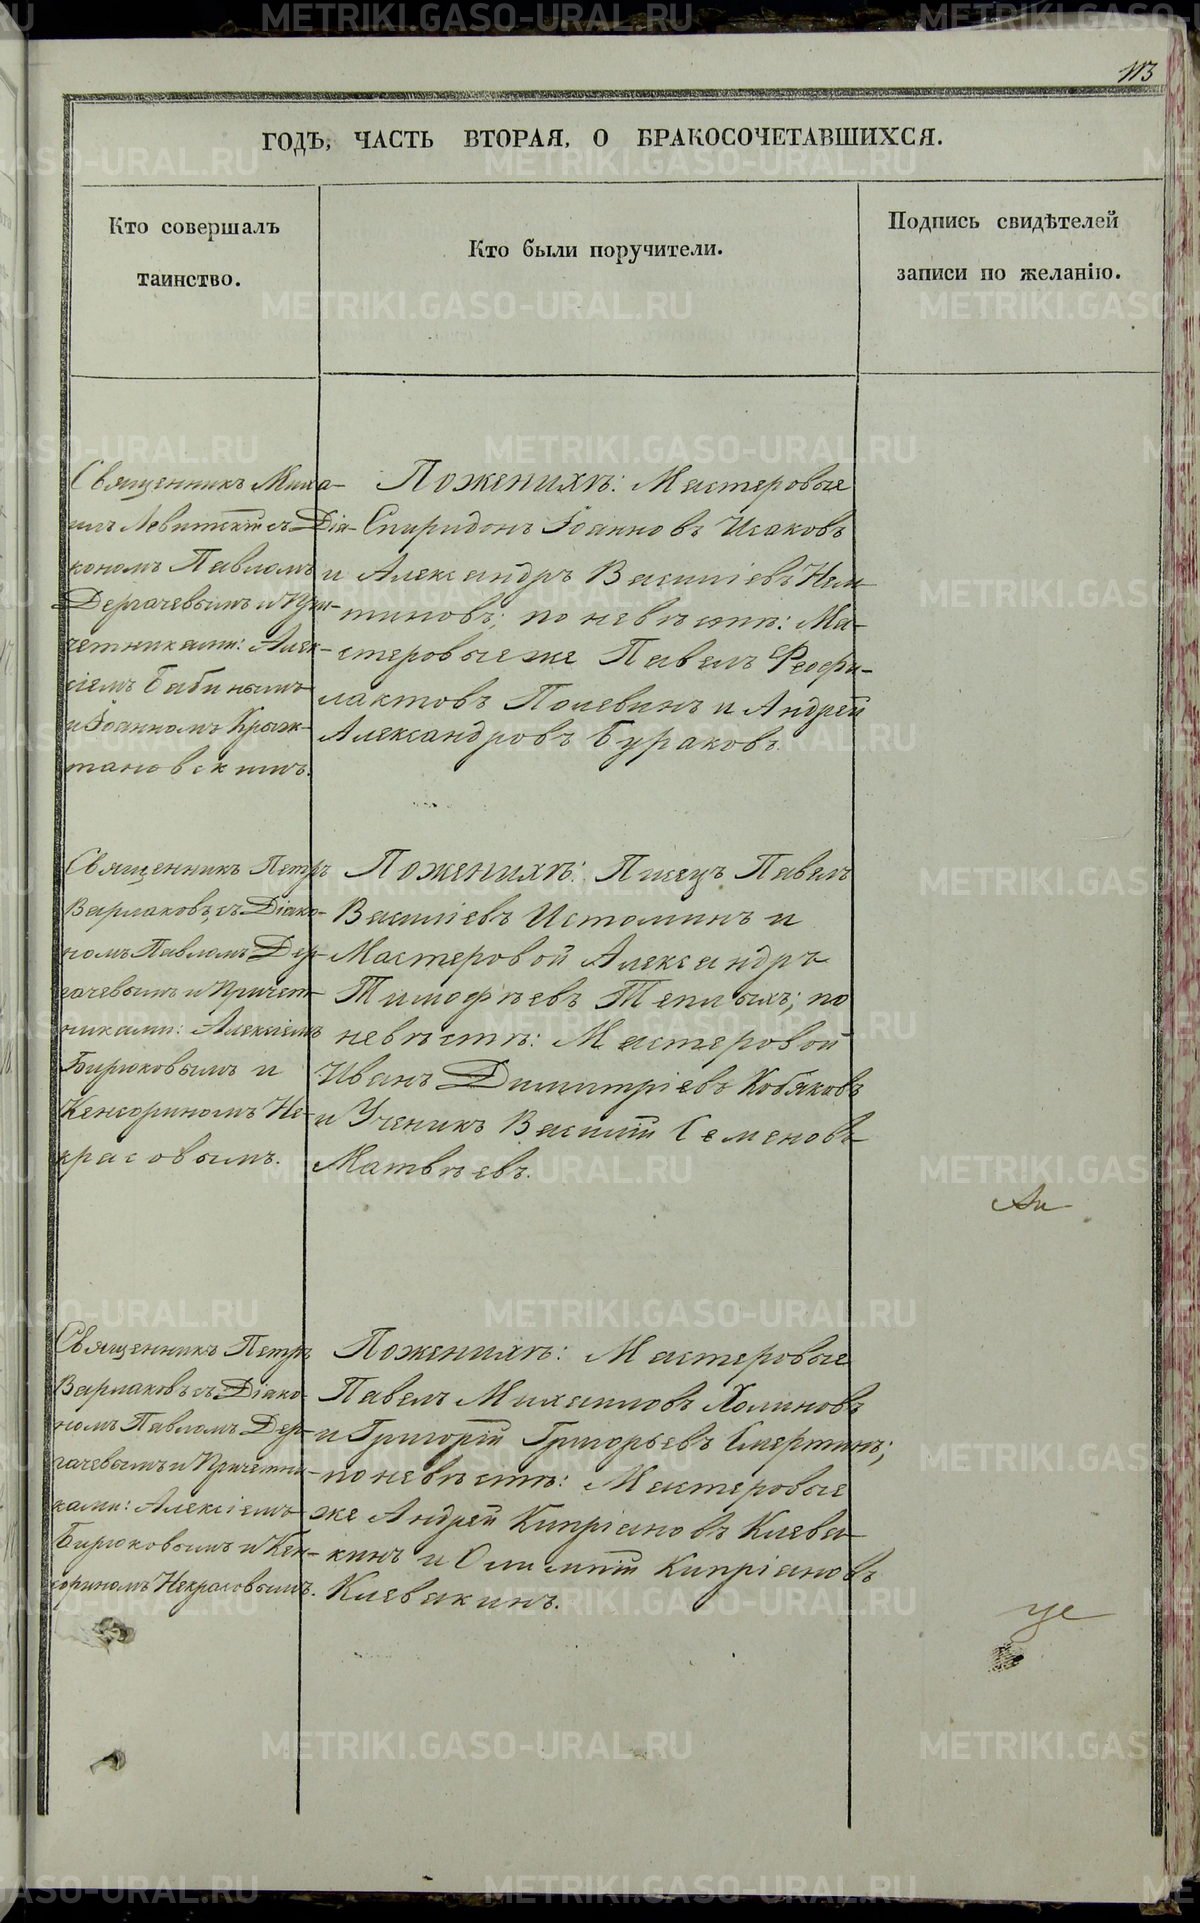 113
ГОДЪ, ЧАСТЬ ВТОРАЯ, О БРАКОСОЧЕТАВШИХСЯ.
Кто совершалъ
таинство.
Кто были поручители.
Подпись свидѣтелей
записи по желанію.
Священникъ Миха-
илъ Левитскій съ Діа-
кономъ Павломъ
Дергачевымъ и При-
четниками: Алек-
сіемъ Бабинымъ
и Іоанномъ Крыж-
тановскимъ.
По женихѣ: Мастеровые
Спиридонъ Іоанновъ Исаковъ
и Александръ Василіевъ
тиновъ; по невѣстѣ: Ма-
стеровые же Павелъ Феофи-
лактовъ Полевинъ и Андрей
Александровъ Бураковъ.
Священникъ Петръ
Варлаковъ съ Діако-
номъ Павломъ Дер-
гачевымъ и Причет-
никами: Алексіемъ
Бирюковымъ и
Кенсориномъ Не-
красовымъ.
По женихѣ: Писецъ Павелъ
Василіевъ Истоминъ и
Мастеровой Александръ
Тимофѣевъ Теплыхъ; по
невѣстѣ: Мастеровой
Иванъ Димитріевъ Кобяковъ
и Ученикъ Василій Семеновъ
Матвѣевъ.
Священникъ Петръ
Варлаковъ съ Діако-
номъ Павломъ Дер-
гачевымъ и Причетни-
ками: Алексіемъ
Бирюковымъ и Кен-
сориномъ Некрасовымъ.
По женихѣ: Мастеровые
Павелъ Михаиловъ Холиновъ
и Григорій Григорьевъ Смертинъ;
по невѣстѣ: Мастеровые
же Андрей Кипріановъ Клева-
кинъ и Олимпій Кипріановъ
Клевакинъ.